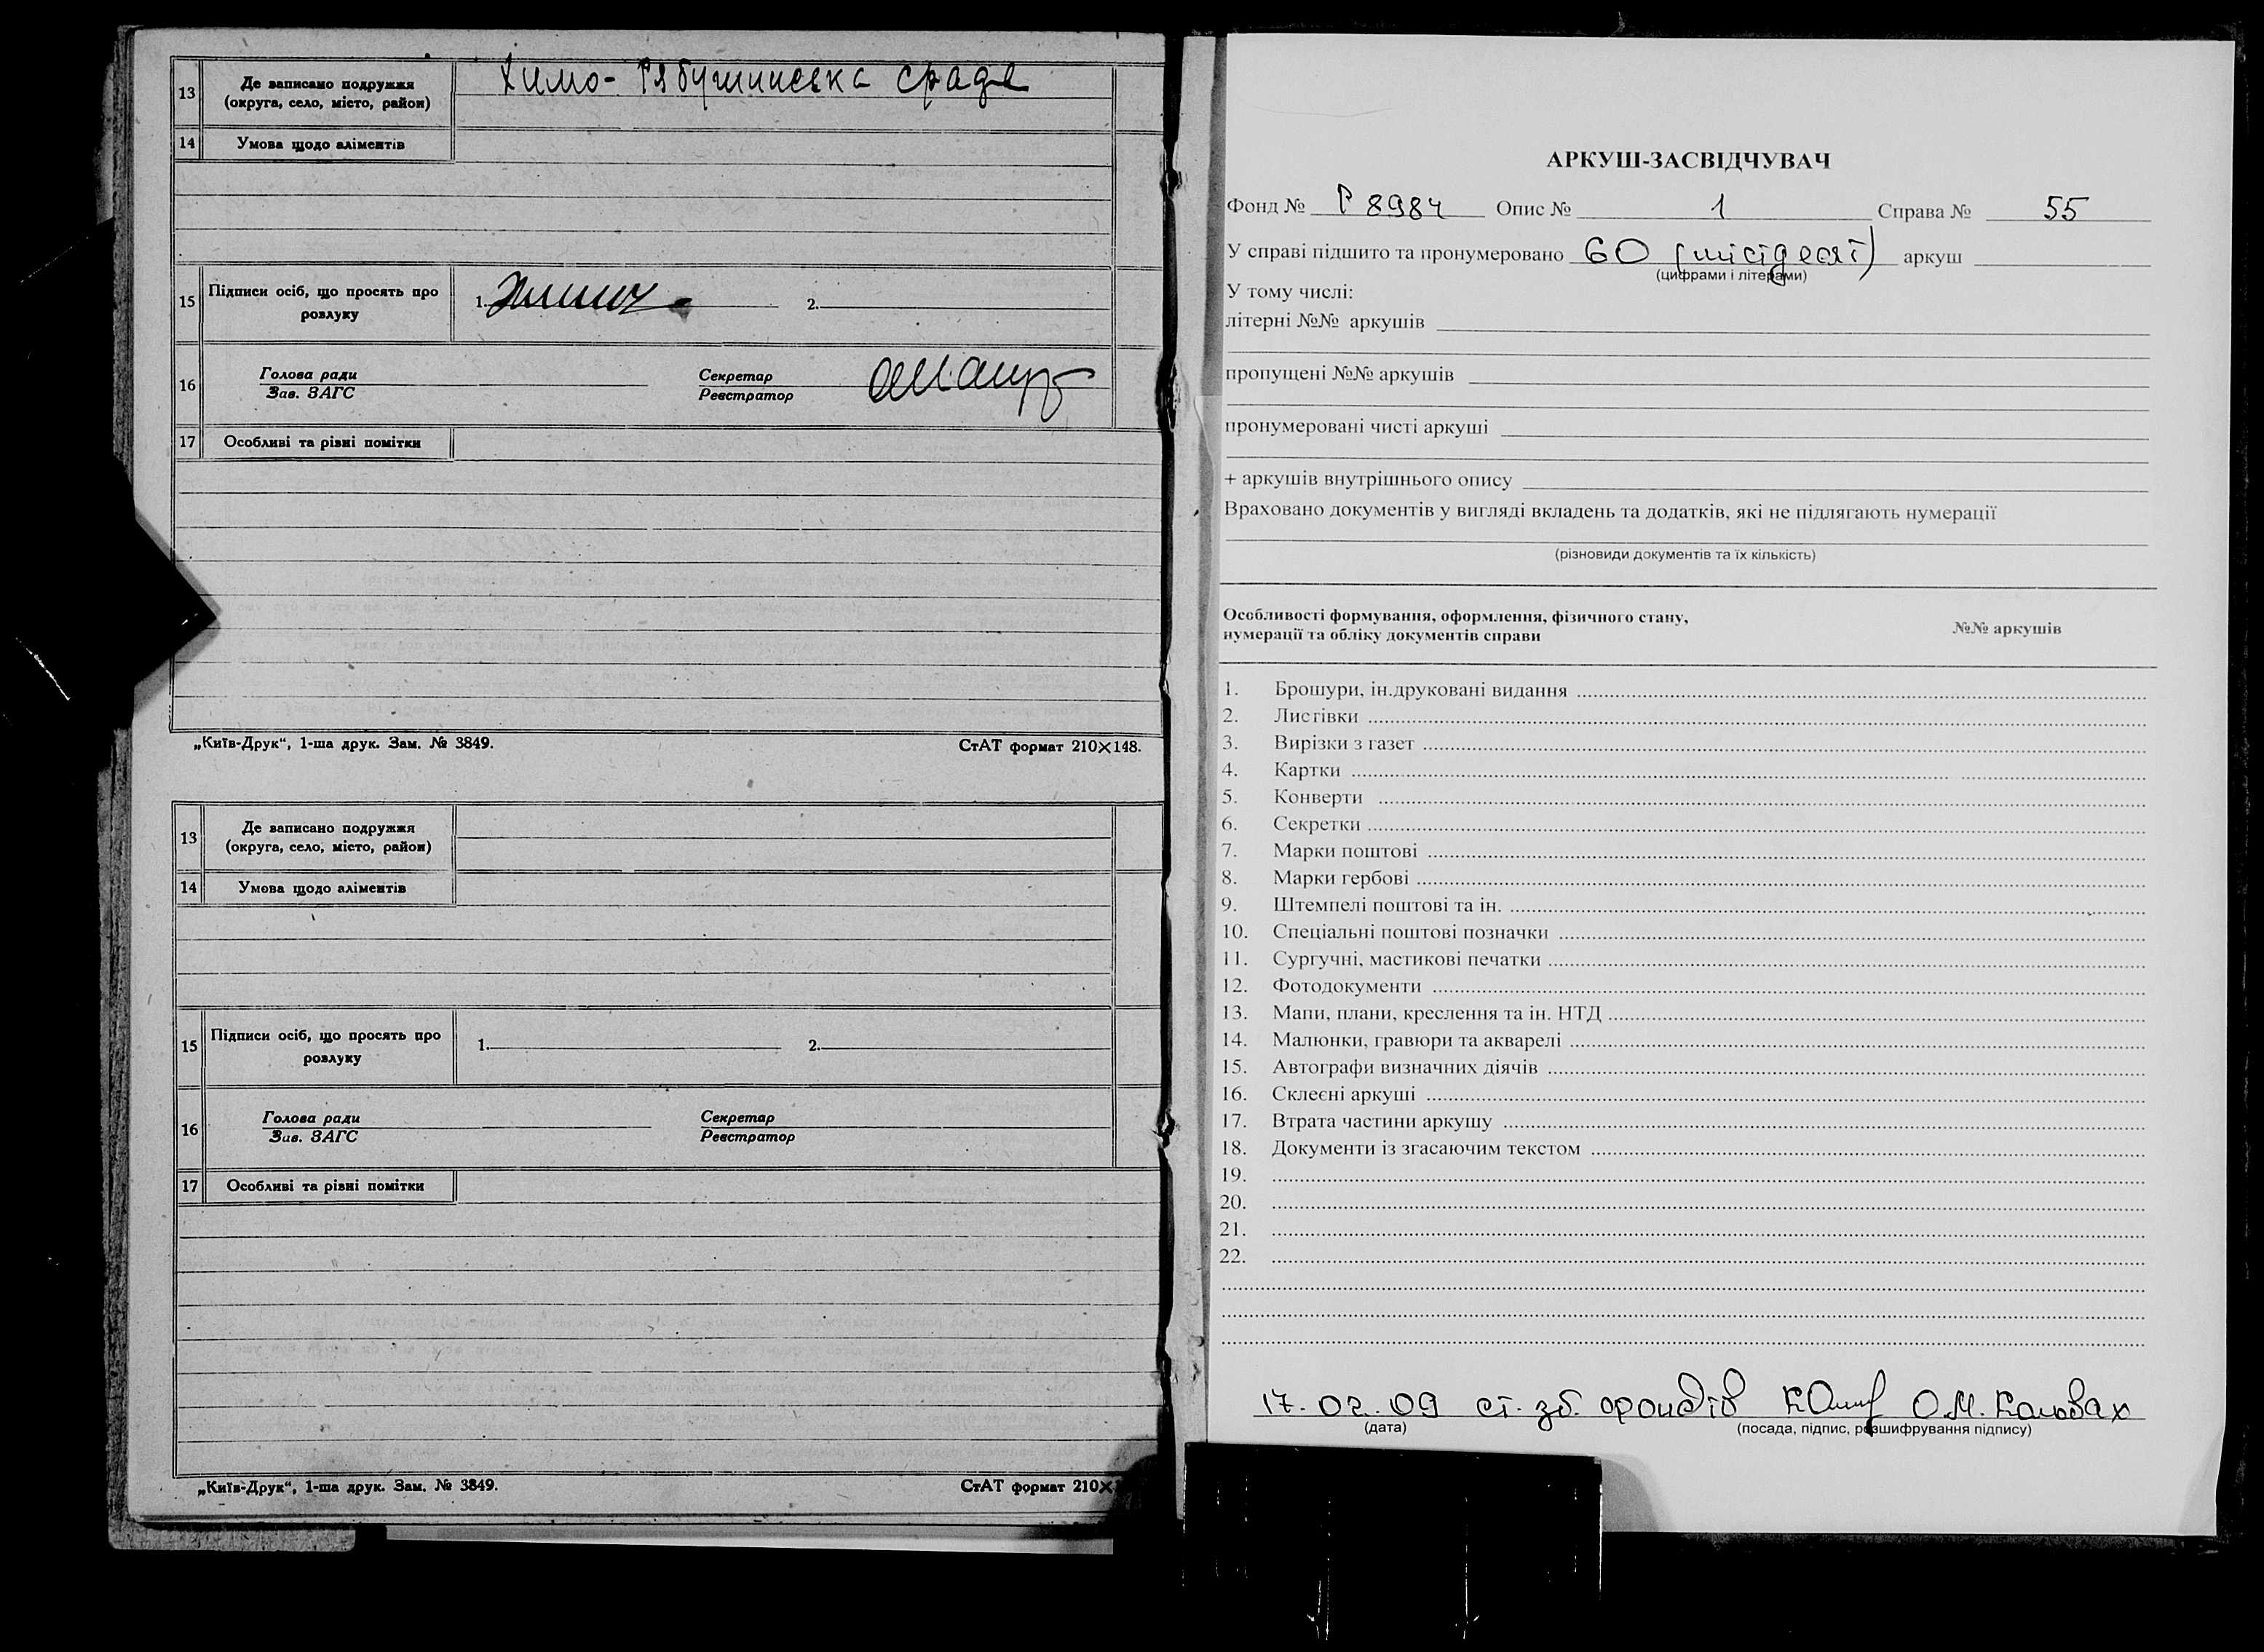 13 Де записано подружжя
(округа, село, місто, район)
Химо-Рябушинська срада
14 Умова щодо аліментів
15 Підписи осіб, що просять про
розлуку
1. 2.
16 Голова ради
Зав. ЗАГС
Секретар
Реєстратор
17 Особливі та різні помітки
„Київ-Друк“, 1-ша друк. Зам. № 3849. СтАТ формат 210×148.
13 Де записано подружжя
(округа, село, місто, район)
14 Умова щодо аліментів
15 Підписи осіб, що просять про
розлуку
1. 2.
16 Голова ради
Зав. ЗАГС
Секретар
Реєстратор
17 Особливі та різні помітки
„Київ-Друк“, 1-ша друк. Зам. № 3849. СтАТ формат 210×
АРКУШ-ЗАСВІДЧУВАЧ
Фонд № Р 8984 Опис № 1 Справа № 55
У справі підшито та пронумеровано 60 (шістдесят) аркуш
(цифрами і літерами)
У тому числі:
літерні №№ аркушів
пропущені №№ аркушів
пронумеровані чисті аркуші
+ аркушів внутрішнього опису
Враховано документів у вигляді вкладень та додатків, які не підлягають нумерації
(різновиди документів та їх кількість)
Особливості формування, оформлення, фізичного стану,
нумерації та обліку документів справи
№№ аркушів
1. Брошури, ін.друковані видання
2. Листівки
3. Вирізки з газет
4. Картки
5. Конверти
6. Секретки
7. Марки поштові
8. Марки гербові
9. Штемпелі поштові та ін.
10. Спеціальні поштові позначки
11. Сургучні, мастикові печатки
12. Фотодокументи
13. Мапи, плани, креслення та ін. НТД
14. Малюнки, гравюри та акварелі
15. Автографи визначних діячів
16. Склеєні аркуші
17. Втрата частини аркушу
18. Документи із згасаючим текстом
19.
20.
21.
22.
17.02.09 ст. зб. фондів О.М. Кольвах
(дата) (посада, підпис, розшифрування підпису)